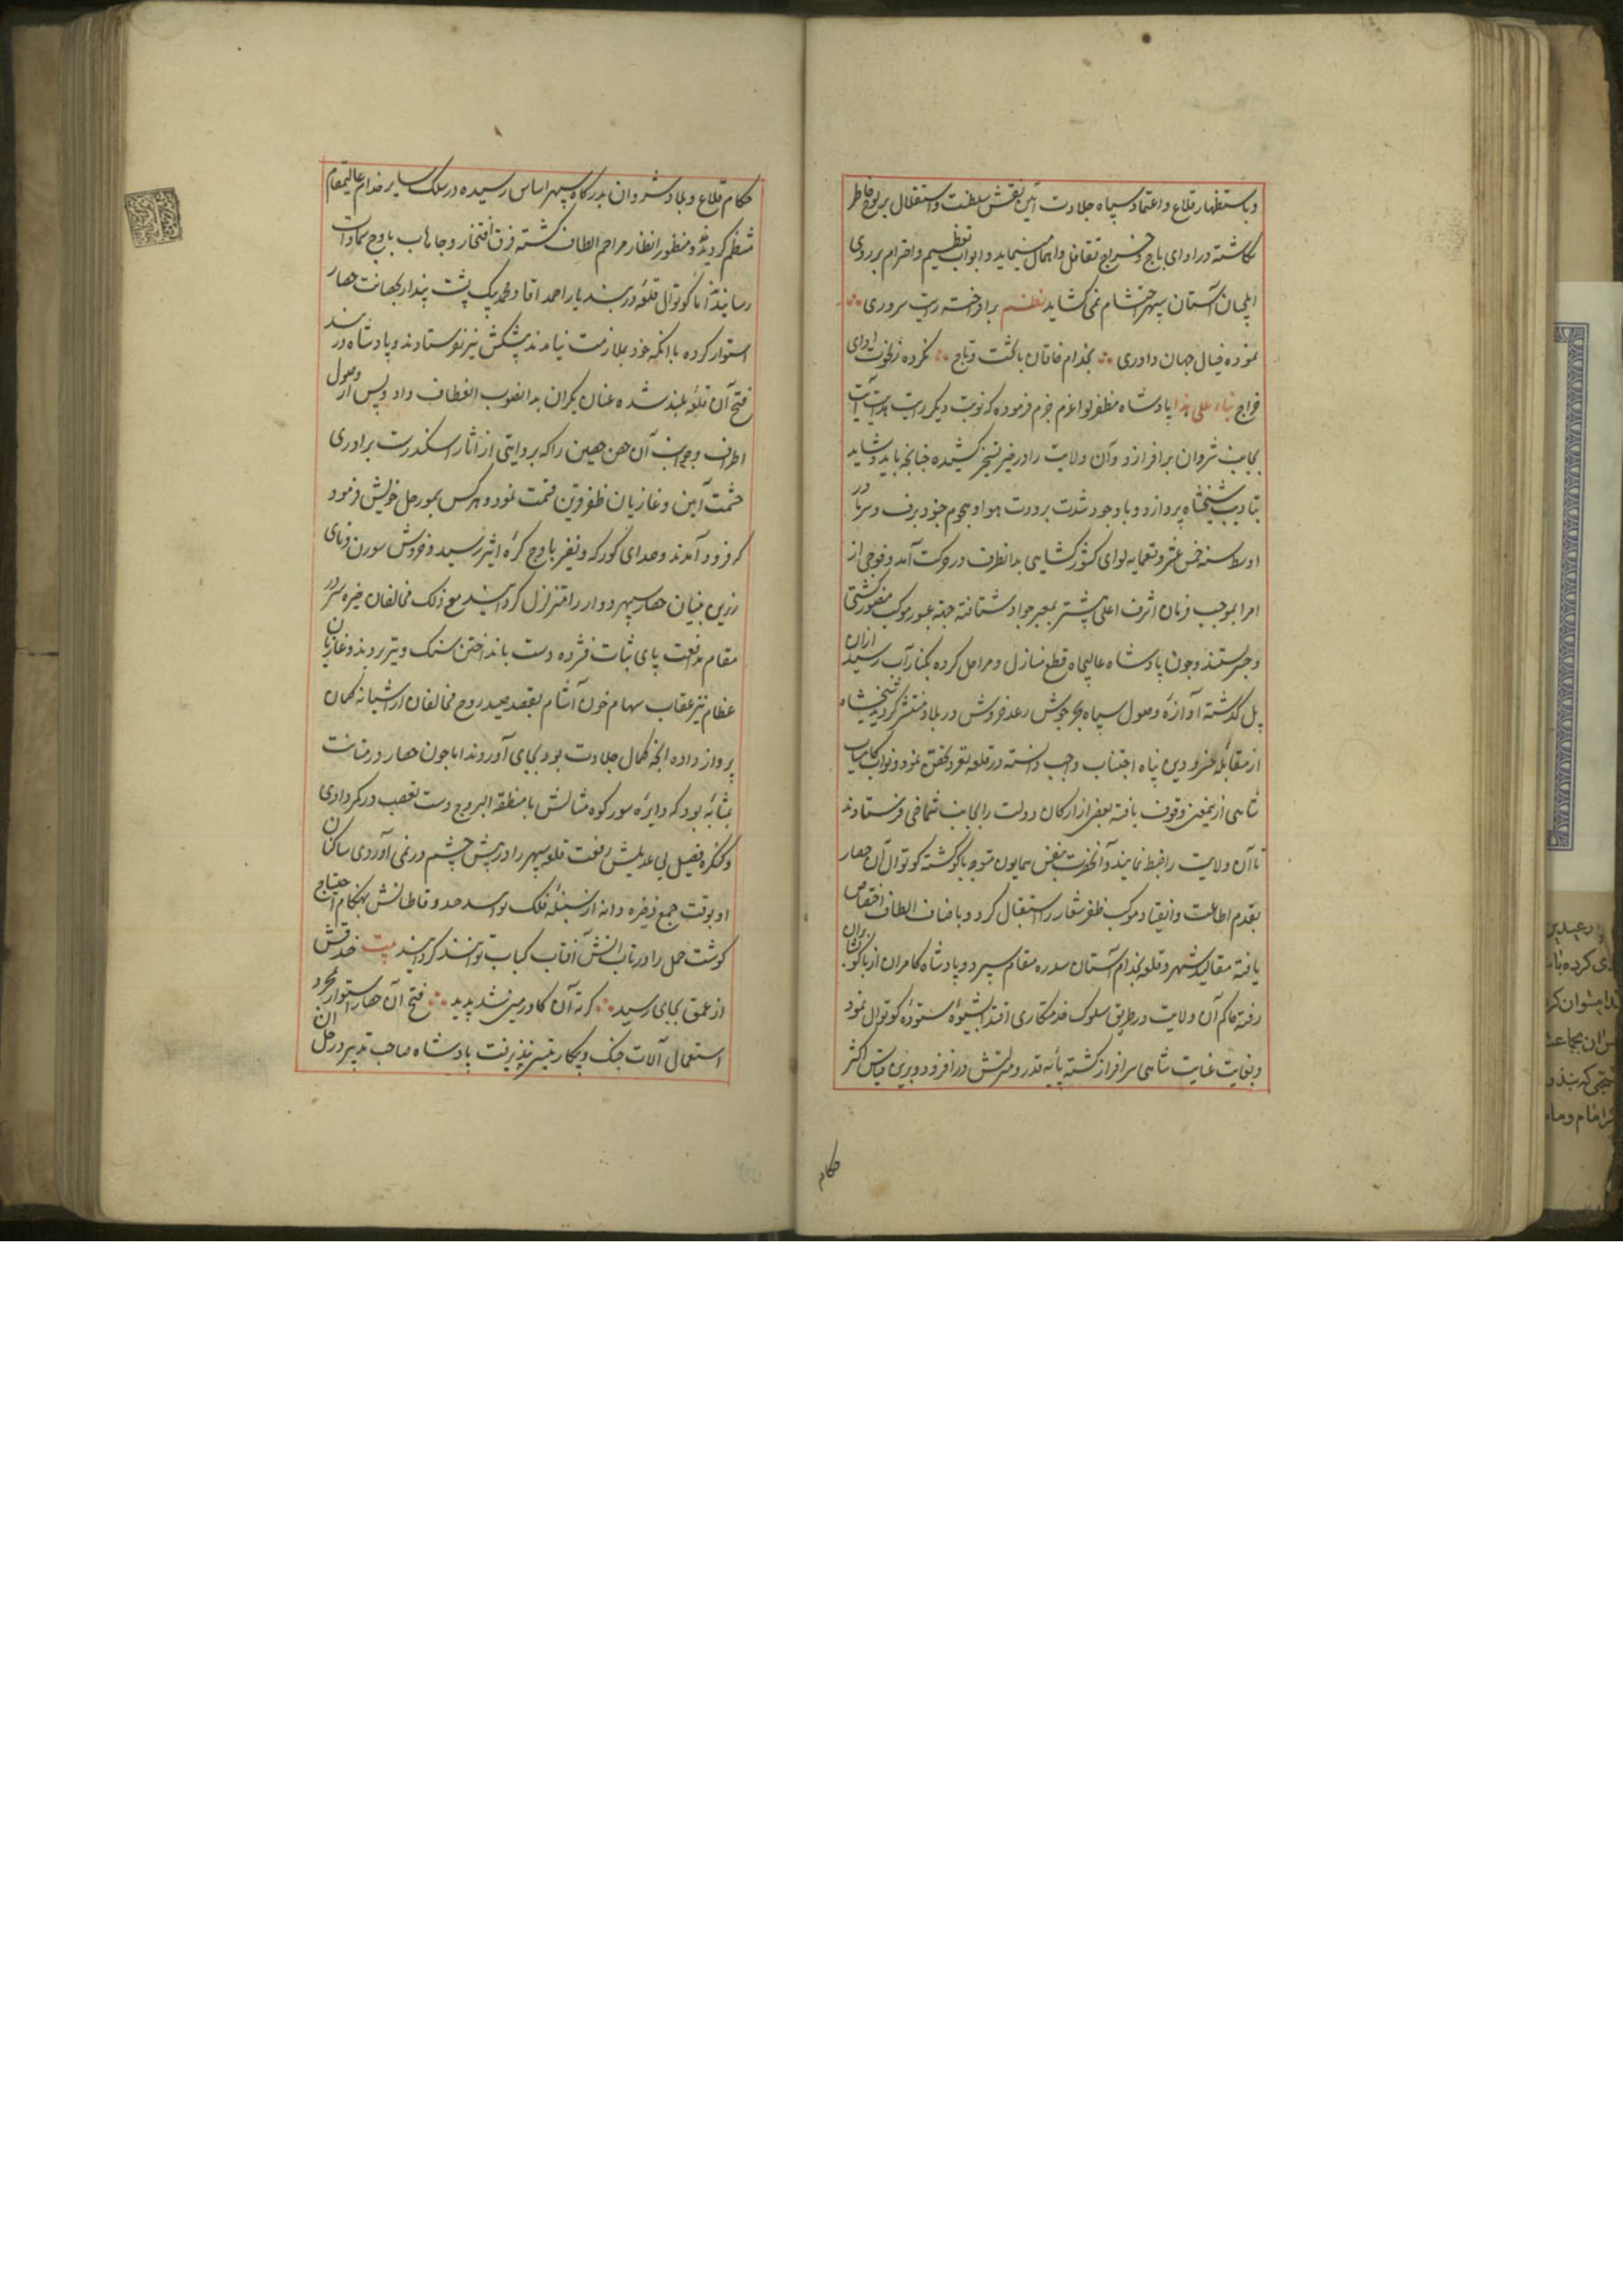 و باستظهار قلاع و اعتماد سپاه جلادت آئین نقش سلطنت و استقلال بر لوح خاطر
نکاشته در ادای باج و خراج تغافل و اهمال مینماید و ابواب تعظیم و احترام بر روی
ایلچیان آستان سپهر احتشام نمی کشاید نظم برافراخته رایت سروری
نموده خیال جهان داوری بخدام خاقان با تخت و تاج نکرده ز نخوت ادای
خراج بناء علی هذا پادشاه مظفر لوا عزم جزم فرموده که نوبت دیکر رایت هدایت آیت
بجانب شروان برافرازد و آن ولایت را در حیز تسخیر کشیده چنانچه باید و شاید
بتادیب شیخشاه پردازد و با وجود شدت برودت هوا و هجوم جنود برف و سرما در
اوسط سنه خمس عشر و تسعمایه لوای کشور کشایی بدانطرف در حرکت آمد و فوجی از
امرا بموجب فرمان اشرف اعلی پیشتر بمعبر جواد شتافته جهة عبور موکب منصور کشتی
و جسر بستند و چون پادشاه عالیجاه قطع منازل و مراحل کرده بکنار آب رسید از ان
پل کذشته آوازه وصول سپاه بحر جوش رعد خروش در بلاد منتشر کردید شیخشاه
از مقابله خسرو دین پناه اجتناب واجب دانسته در قلعه بغرد تحصن نمود و نواب کامیاب
شاهی از یمعنی وقوف یافته بعضی از ارکان دولت را بجانب شماخی فرستادند
تا آن ولایت را ضبط نمایند و آنحضرت بنفس همایون متوجه باکو کشته کوتوال آن حصار
بقدم اطاعت و انقیاد موکب ظفر شعار را استقبال کرد و باصناف الطاف اختصاص
یافته مقالید شهر و قلعه بخدام آستان سدره مقام سپرد و پادشاه کامران از باکو بشابران
رفته حاکم آن ولایت در طریق سلوک خدمتکاری اقتدا بشیوه ستوده کوتوال نمود
و بغایت عنایت شاهی سرافراز کشته پایه قدر و منزلتش در افزود و برین قیاس اکثر
حکام
حکام قلاع و بلاد شروان بدرکاه سپهر اساس رسیده در سلک سایر خدام عالیمقام
منتظم کردیدند و منظور انظار مراحم الطاف کشته فرق افتخار و مباهات باوج سماوات
رسانیدند اما کوتوال قلعه دربند یار احمد اقا و محمد بیک پشت پندار بحصانت حصار
استوار کرده با آنکه خود بملازمت نیامدند پیشکش نیز نفرستادند و پادشاه در بند
فتح آن قلعه بلند شده عنان یکران بدانصوب انعطاف داد و پس از وصول
اطراف و جوانب آن حصن حصین را که بروایتی از آثار اسکندرست بر امرای
حشمت آیین و غازیان ظفر قرین قسمت نمود و هر کس بمورچل خویش فرمود
که فرود آمدند و صدای کورکه و نفیر باوج کره اثیر رسید و خروش سورن و نای
زرین بنیان حصار سپهر دوار را متزلزل کردانید مع ذلک مخالفان خیره سر در
مقام مدافعت پای ثبات فشرده دست بانداختن سنک و تیر بردند و غازیان
عظام نیز عقاب سهام خون آشام بقصد صید روح مخالفان از آشیانه کمان
پرواز داده آنچه کمال جلادت بود بجای آوردند اما چون حصار در متانت
بمثابه بود که دایره سور کوه مثالش با منطقه البروج دست تعصب در کمر دادی
و کنکره فصیل بی عدیلش رفعت قلعه سپهر را در پیش چشم در نمی آوردی ساکنان
او بوقت جمع ذخیره دانه از سنبله فلک توانستند و قاطنانش بهنکام احتیاج
کوشت حمل را در تاب آتش آفتاب کباب توانستند کردانید بیت خندقش
از عمق بجای رسید که ته آن کاو زمین شد پدید فتح آن حصار استوار بمجرد
استعمالی آلات جنک و پیکار تیسر نپذیرفت پادشاه صاحب تدبیر در حل آن